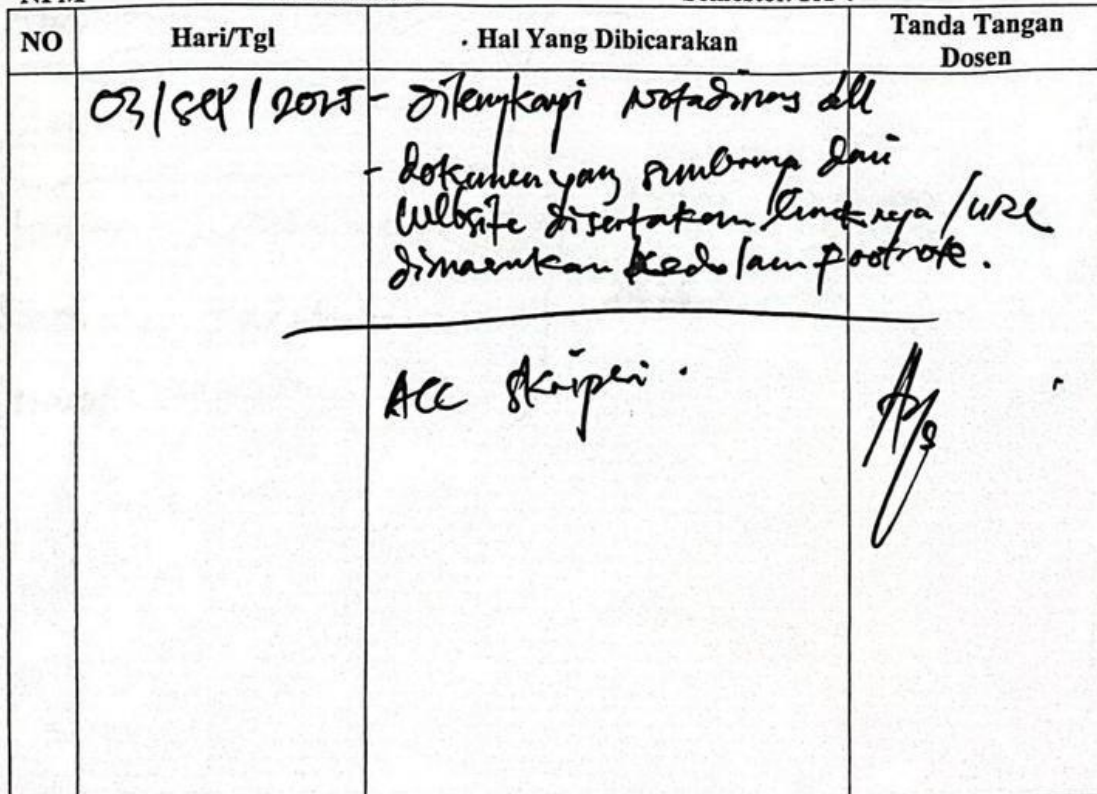 NO
Hari/Tgl
. Hal Yang Dibicarakan
Tanda Tangan
Dosen
03/sep/2025
- Dilengkapi Notadinas dll
- dokumen yang sumbernya dari
website disertakan linknya /URL
dimasukan kedalam footnote.
ACC skripsi.